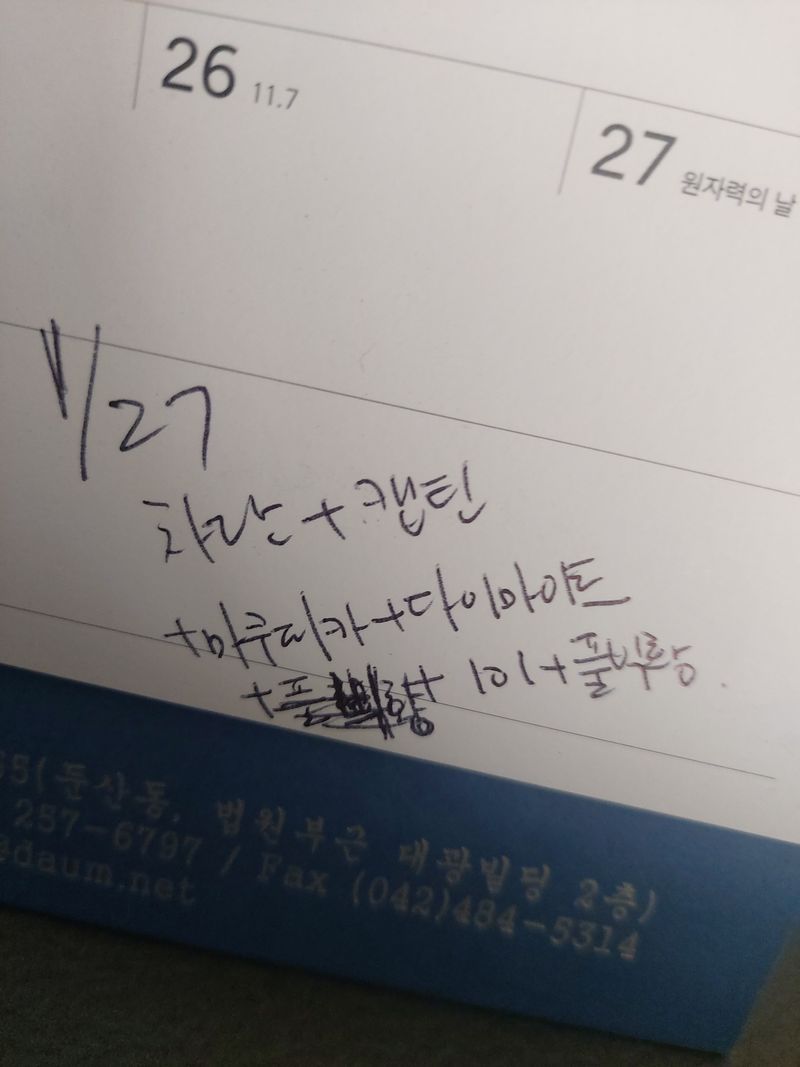 26 11.7
27 원자력의 날
1/27
차란+캡틴
+마쿠피카+다이마이트
+ 101+풀빅랑
65(둔산동, 법원부근 대광빌딩 2층)
257-6797 / Fax (042)484-5314
edaum.net